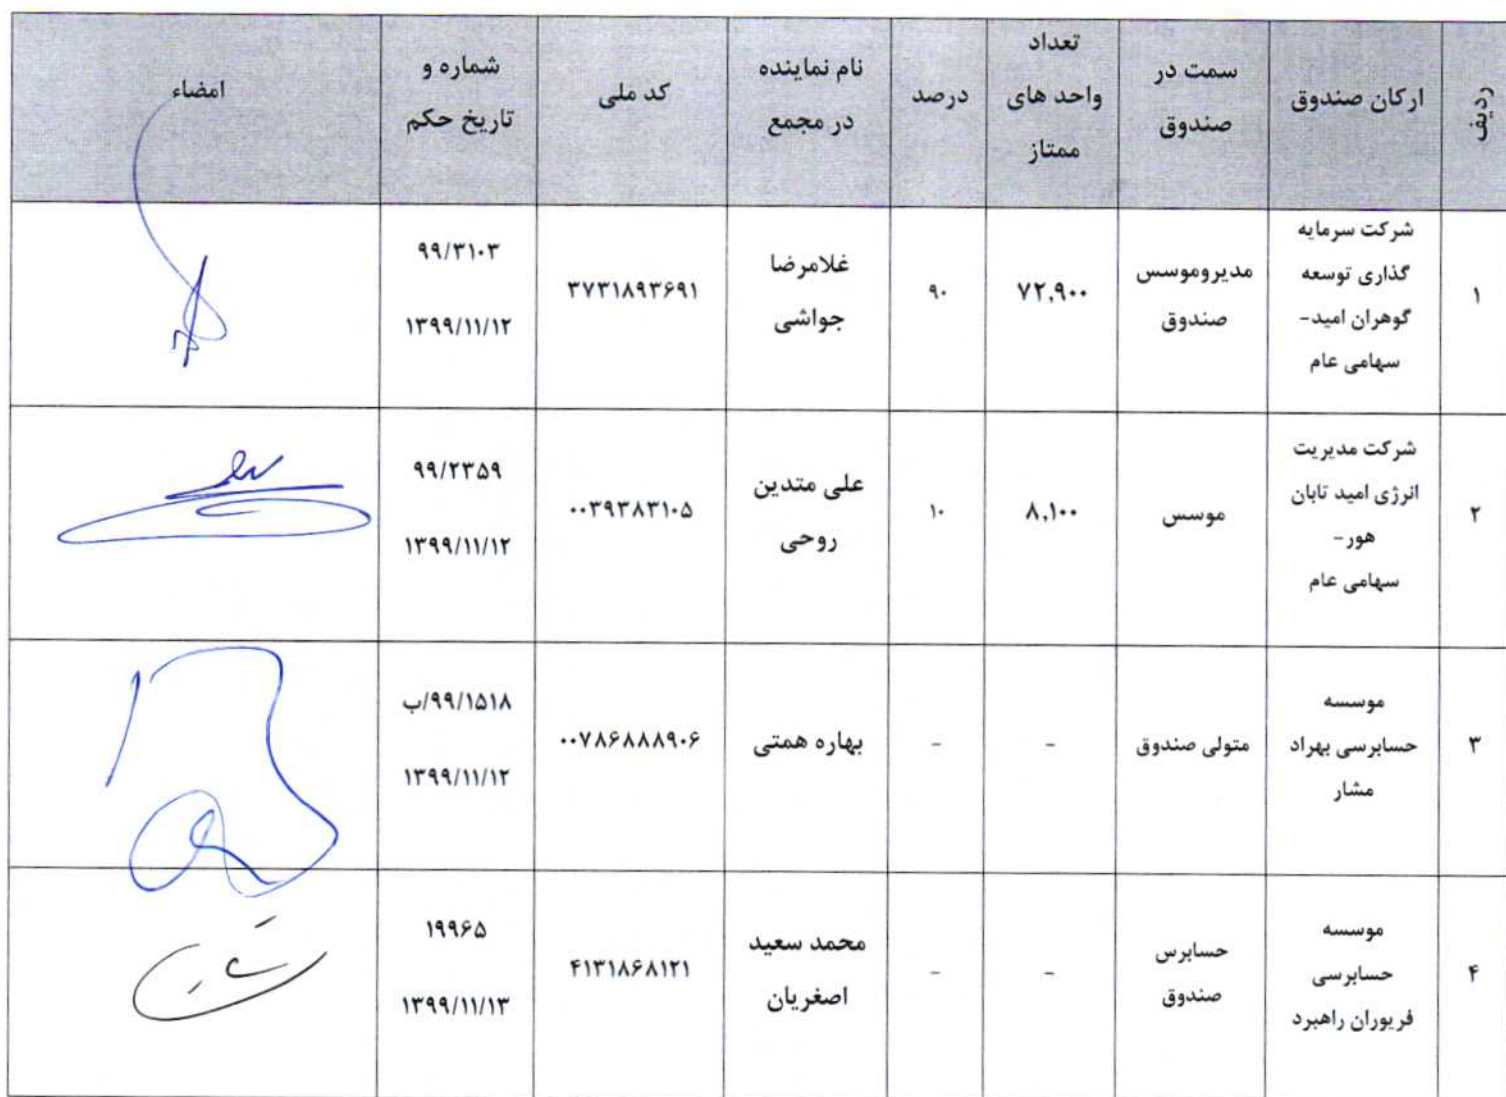 ردیف
ارکان صندوق
سمت در
صندوق
تعداد
واحد های
ممتاز
درصد
نام نماینده
در مجمع
کد ملی
شماره و
تاریخ حکم
امضاء
۱
شرکت سرمایه
گذاری توسعه
گوهران امید-
سهامی عام
مدیروموسس
صندوق
۷۲,۹۰۰
۹۰
غلامرضا
جواشی
۳۷۳۱۸۹۳۶۹۱
۹۹/۳۱۰۳
۱۳۹۹/۱۱/۱۲
۲
شرکت مدیریت
انرژی امید تابان
هور-
سهامی عام
موسس
۸,۱۰۰
۱۰
علی متدین
روحی
۰۰۳۹۳۸۳۱۰۵
۹۹/۲۳۵۹
۱۳۹۹/۱۱/۱۲
۳
موسسه
حسابرسی بهراد
مشار
متولی صندوق
-
-
بهاره همتی
۰۰۷۸۶۸۸۸۹۰۶
۹۹/۱۵۱۸/ب
۱۳۹۹/۱۱/۱۲
۴
موسسه
حسابرسی
فریوران راهبرد
حسابرس
صندوق
-
-
محمد سعید
اصغریان
۴۱۳۱۸۶۸۱۲۱
۱۹۹۶۵
۱۳۹۹/۱۱/۱۳